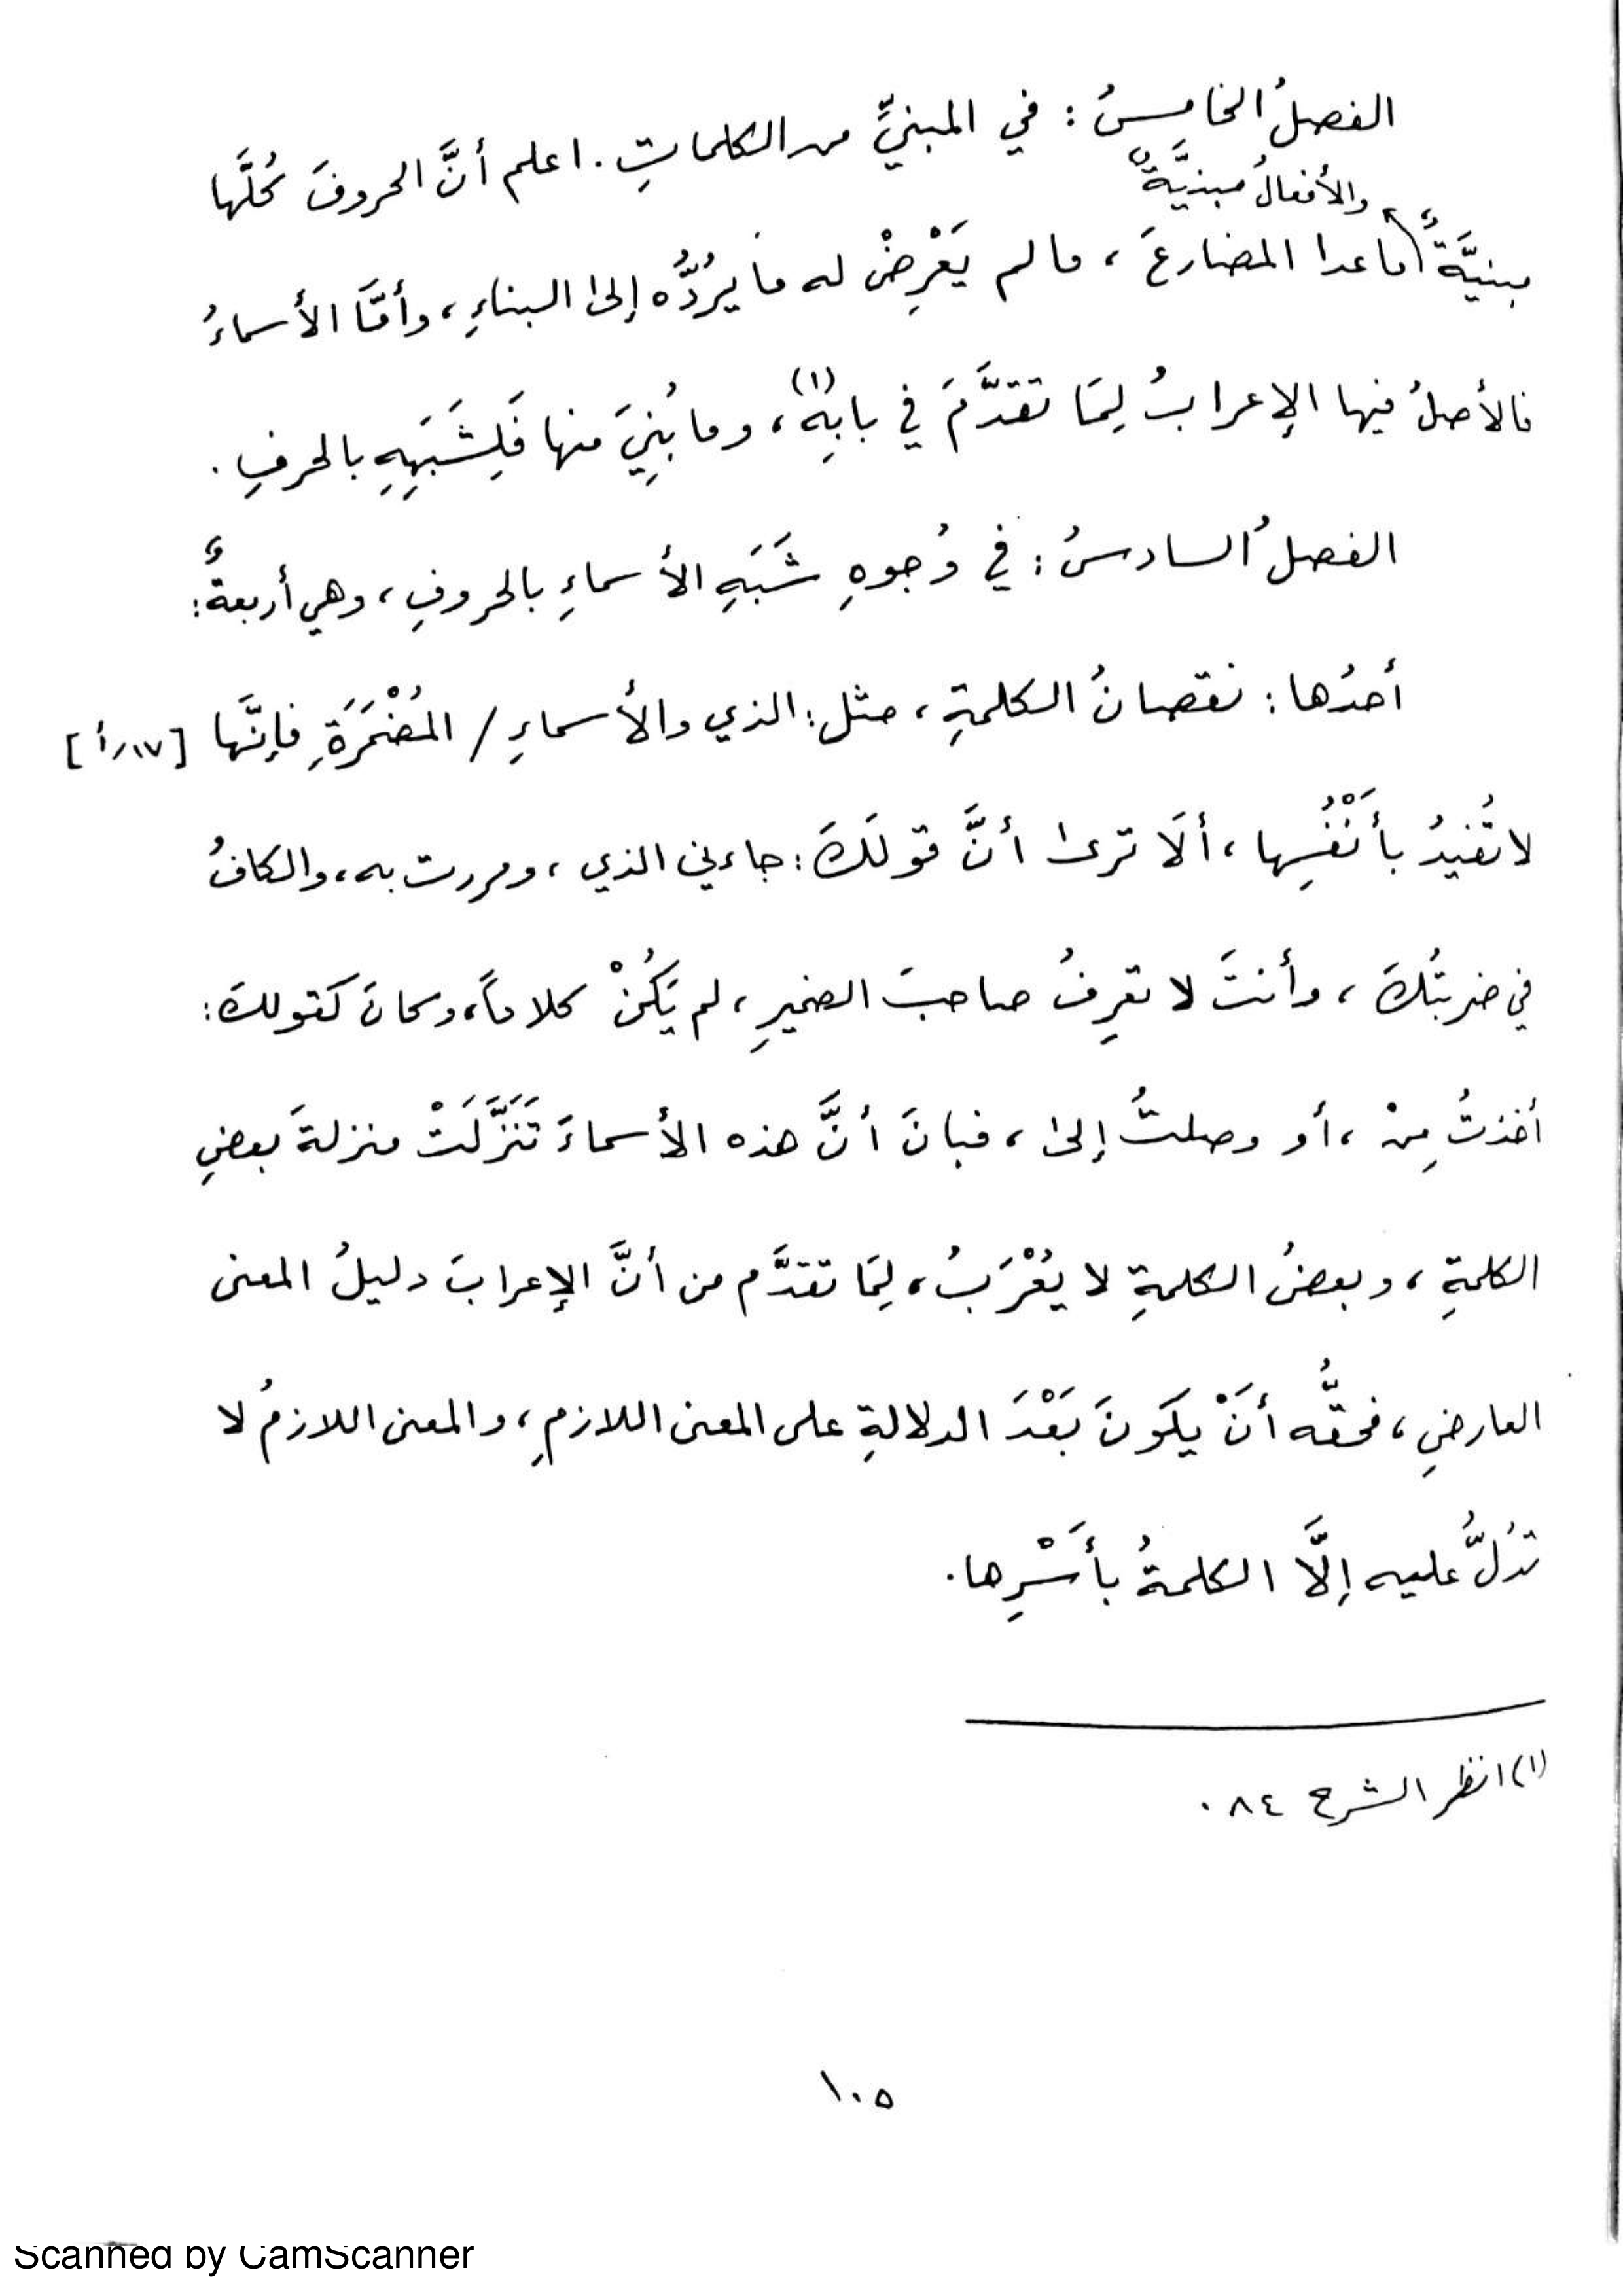 الفصلُ الخامسُ : في المبنيِّ من الكلماتِ . اعلم أنَّ الحروفَ كُلَّها
والأفعالُ مبنيَّةٌ
مبنيَّةٌ ماعدا المضارعَ ، ما لم يَعْرِضْ له ما يَرُدُّه إلىٰ البناءِ ، وأمَّا الأسماءُ
فالأصلُ فيها الإعرابُ لِمَا تقدَّمَ في بابِهِ (١) ، وما بُنِيَ منها فَلِشَبَهِهِ بالحرفِ .
الفصلُ السادسُ : في وُجوهِ شَبَهِ الأسماءِ بالحروفِ ، وهي أربعةٌ :
أحدُها : نقصانُ الكلمةِ ، مثل : الذي والأسماءِ / المُضْمَرَةِ فإنَّها [١٧/أ]
لا تُفيدُ بأَنْفُسِها ، ألَا ترىٰ أنَّ قولَكَ : جاءني الذي ، ومررت به ، والكافُ
في ضربتُكَ ، وأنتَ لا تعرِفُ صاحبَ الضميرِ ، لم يَكُنْ كلاماً ، وكانَ كقولكَ :
أخذتُ مِنْ ، أو وصلتُ إلىٰ ، فبانَ أنَّ هذه الأسماءَ تَنَزَّلَتْ منزلةَ بعضِ
الكلمةِ ، وبعضُ الكلمةِ لا يُعْرَبُ ، لِمَا تقدَّم من أنَّ الإعرابَ دليلُ المعنى
العارضِ ، فحقُّه أَنْ يكونَ بَعْدَ الدلالةِ على المعنى اللازمِ ، والمعنى اللازمُ لا
تدُلُّ عليه إلَّا الكلمةُ بأَسْرِها .
(١) انظر الشرح ٨٤ .
١٠٥
Scanned by CamScanner